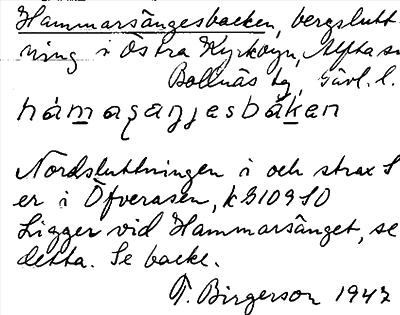 Hammarsängesbacken, bergslutt-
ning i Östra Kyrkbyn, Alfta s
Bollnäs tg, Gävl. l.
hámaşaŋjesbáken
Nordsluttningen i och strax S
er i Öfverasen, k G109 S0
Ligger vid Hammarsänget, se
detta. Se backe.
T. Birgerson 1947